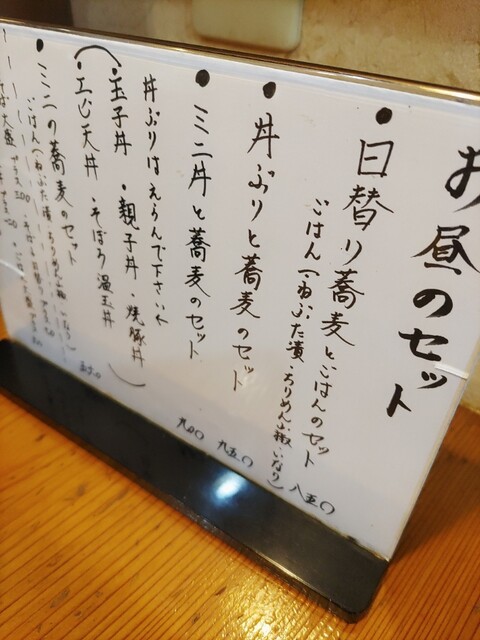 お昼のセット
・日替り蕎麦とごはんのセット 八五〇
ごはん(ねぶた漬・ちりめん山椒・いなり)
・丼ぶりと蕎麦のセット 九五〇
・ミニ丼と蕎麦のセット 九五〇
丼ぶりはえらんで下さい
(・玉子丼・親子丼・焼豚丼
・エビ天丼・そぼろ温玉丼)
・ミニの蕎麦のセット
ごはん(ねぶた漬・ちりめん山椒・いなり)